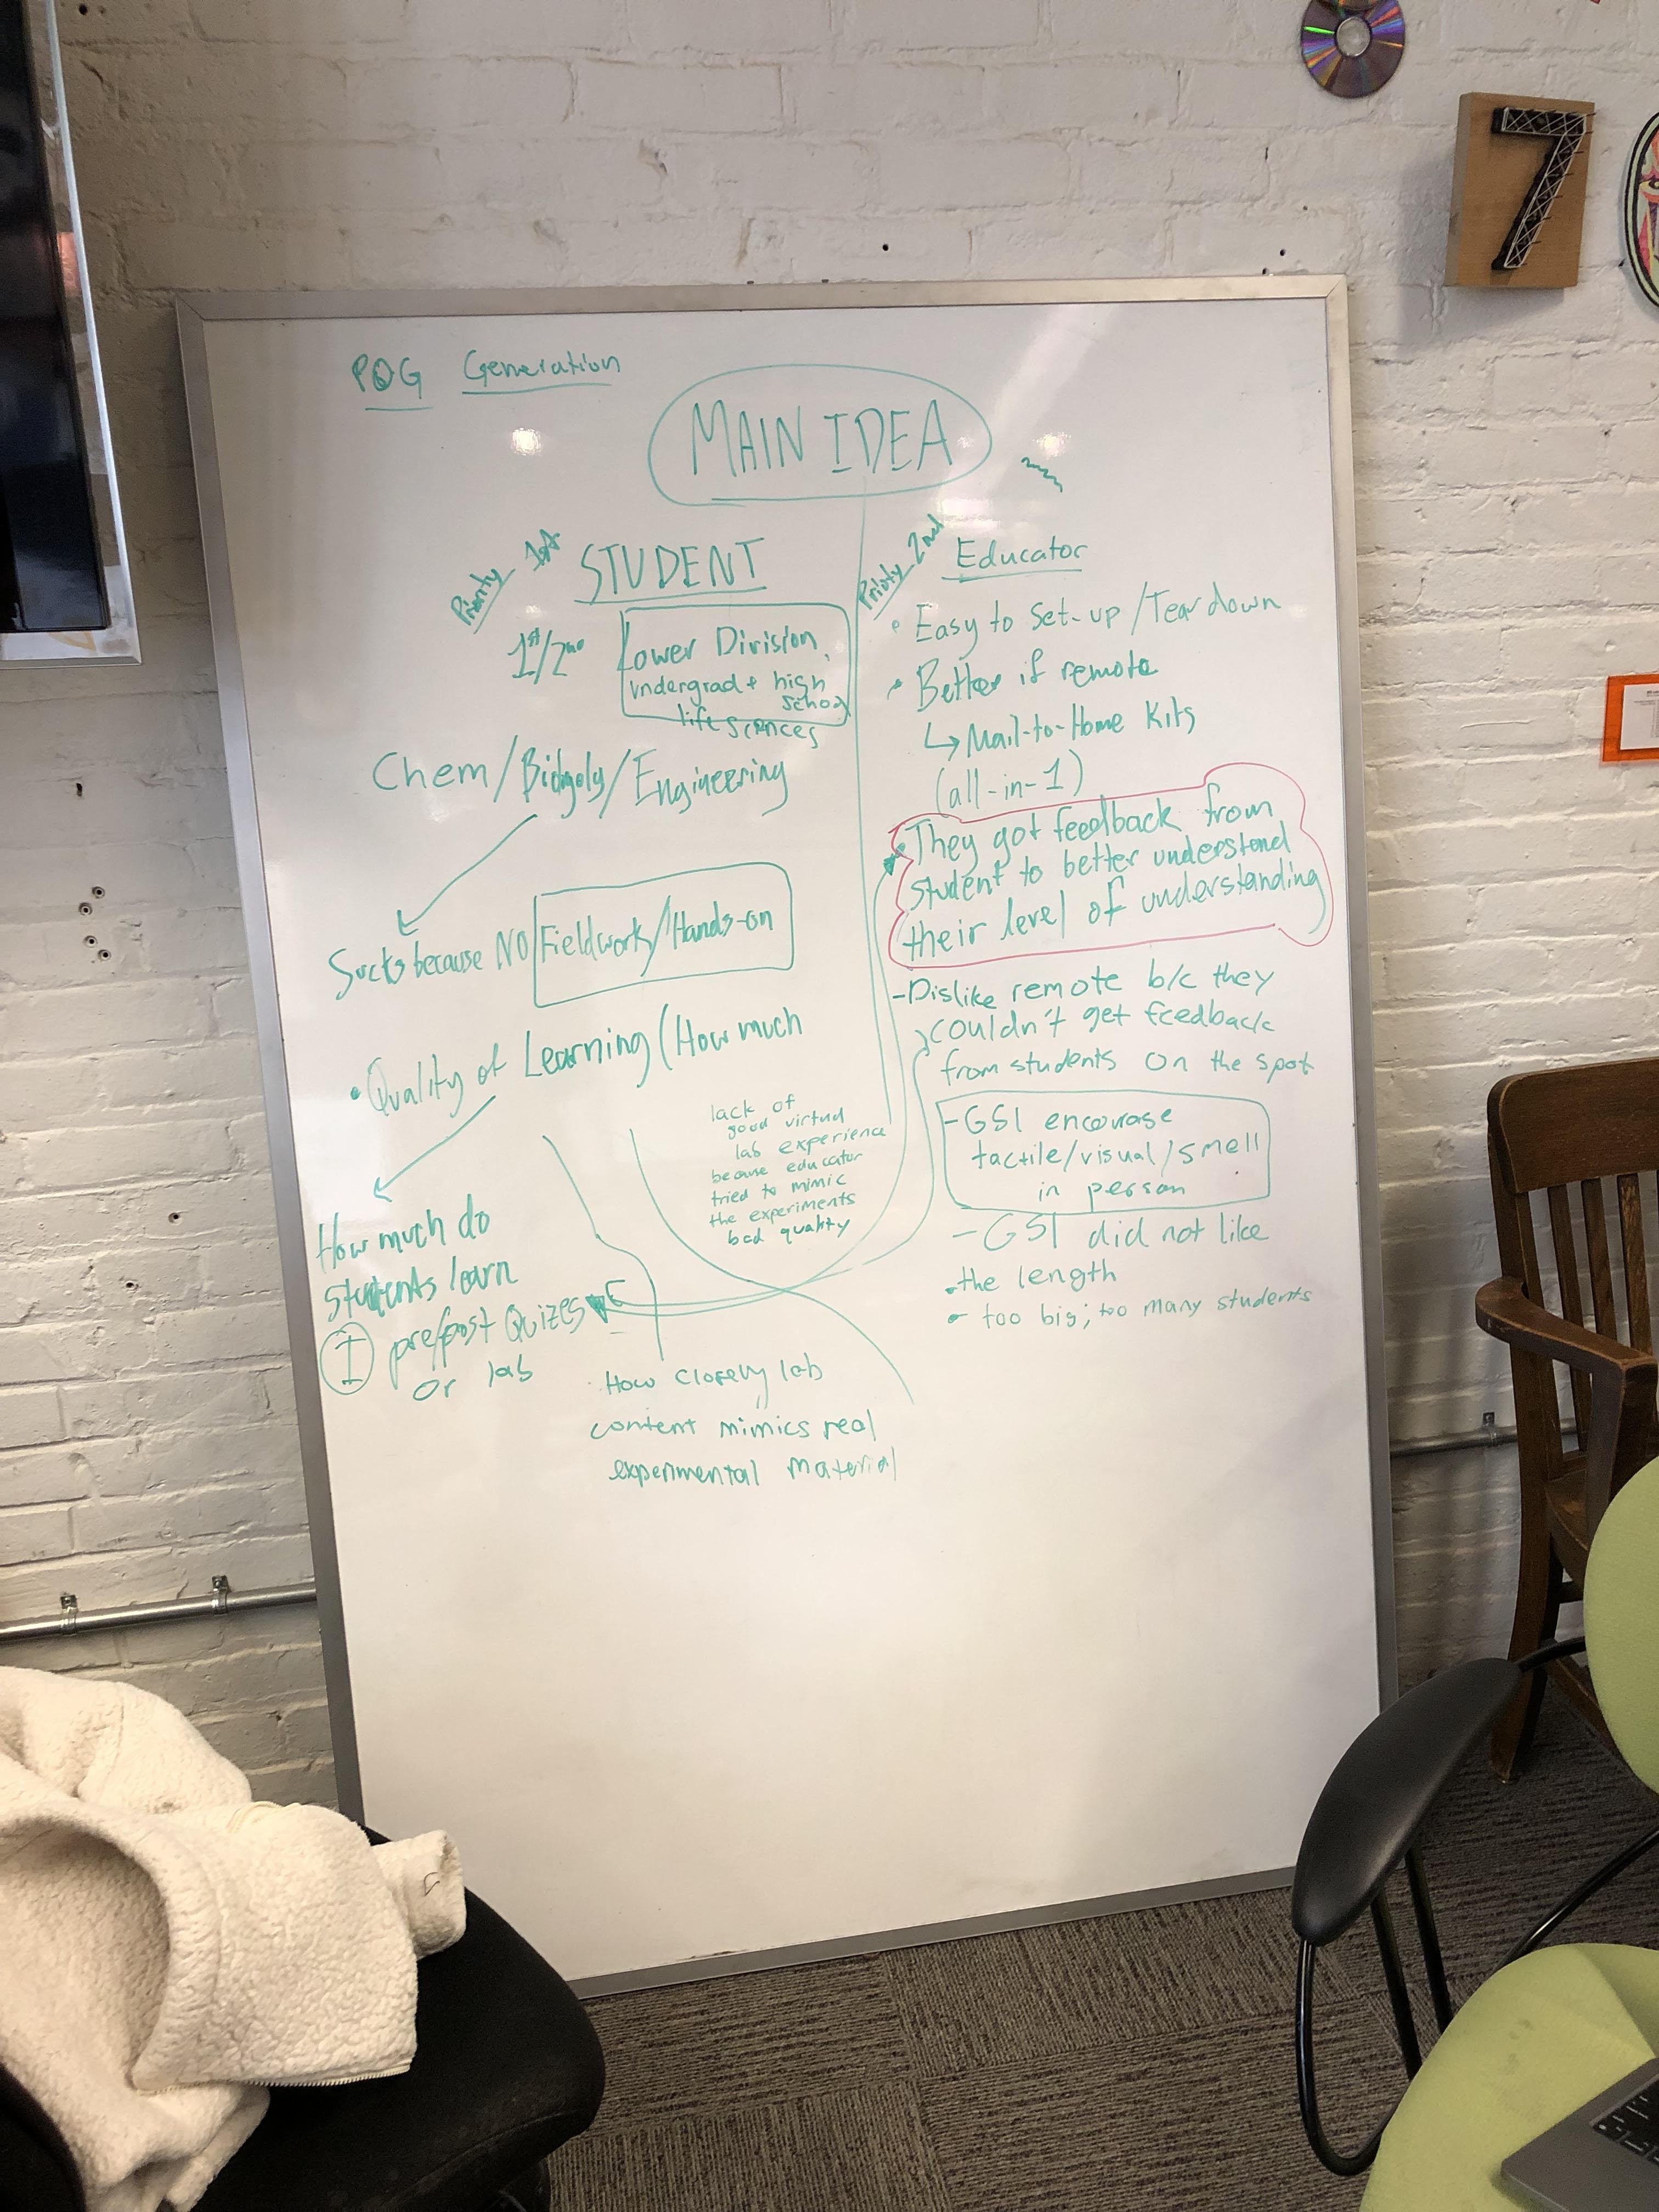 POG Generation
MAIN IDEA
Priority 1st
STUDENT
1st/2nd
Lower Division,
undergrad + high
school
life sciences
Chem/Biology/Engineering
Sucks because NO Fieldwork/Hands-on
• Quality of Learning (How much
How much do
students learn
I pre/post Quizes
or lab
lack of
good virtual
lab experience
because educator
tried to mimic
the experiments
bad quality
How closely lab
content mimics real
experimental material
Priority 2nd
Educator
• Easy to Set-up/Tear down
• Better if remote
↳ Mail-to-Home Kits
(all-in-1)
• They got feedback from
student to better understand
their level of understanding
- Dislike remote b/c they
couldn't get feedback
from students on the spot
- GSI encourage
tactile/visual/smell
in person
- GSI did not like
• the length
• too big; too many students
7